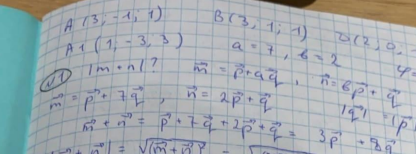 A(3, -1, 1) B(3, 1; 1) D(2, 0,
A1(1, -3, 3) a = 7, b = 2 φ
√1 |m⃗ + n⃗|? m⃗ = p⃗ + aq⃗, n⃗ = bp⃗ + q⃗
m⃗ = p⃗ + 7q⃗, n⃗ = 2p⃗ + q⃗ |q⃗| = |p⃗
m⃗ + n⃗ = p⃗ + 7q⃗ + 2p⃗ + q⃗ = 3p⃗ + 8q⃗